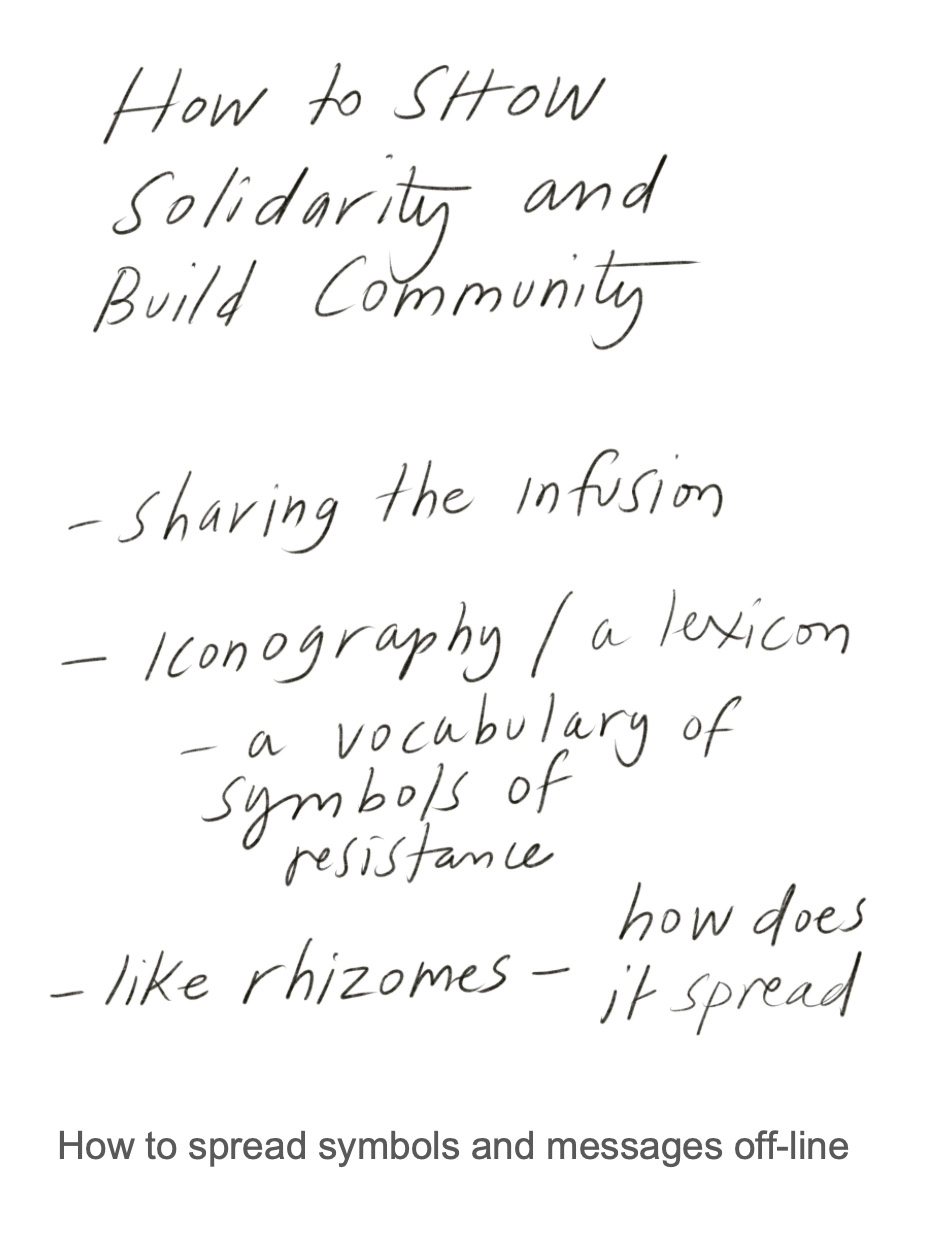 How to SHOW
Solidarity and
Build Community
- sharing the infusion
- Iconography / a lexicon
- a vocabulary of
symbols of
resistance
- like rhizomes - how does
it spread
How to spread symbols and messages off-line